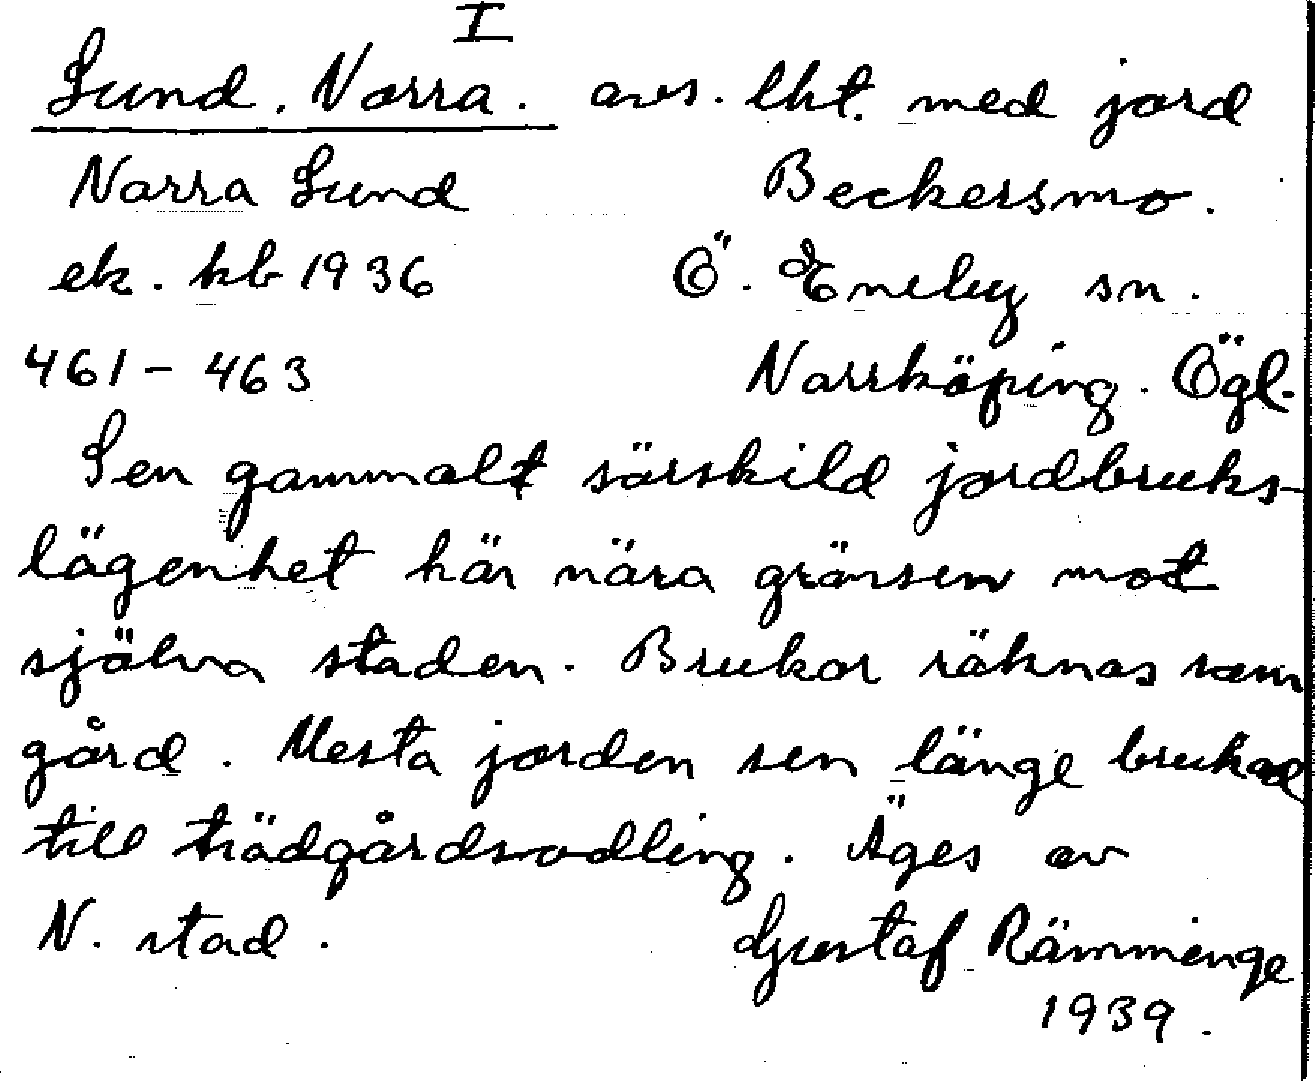 I
Lund, Norra. avs. lht. med jord
Norra Lund Beckersmo.
ek. kb 1936 Ö. Eneby sn.
461-463 Norrköping. Ögl.
Sen gammalt särskild jordbruks-
lägenhet här nära gränsen mot
själva staden. Brukar räknas som
gård. Mesta jorden sen länge brukad
till trädgårdsodling. Äges av
N. stad. Gustaf Rämminge
1939.